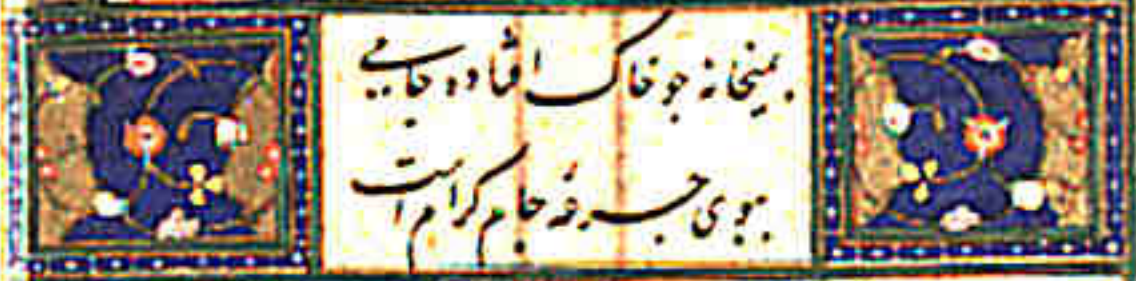 بمیخانه جو خاک افتاده جامی
ببوی جرعهٔ جام کرام است